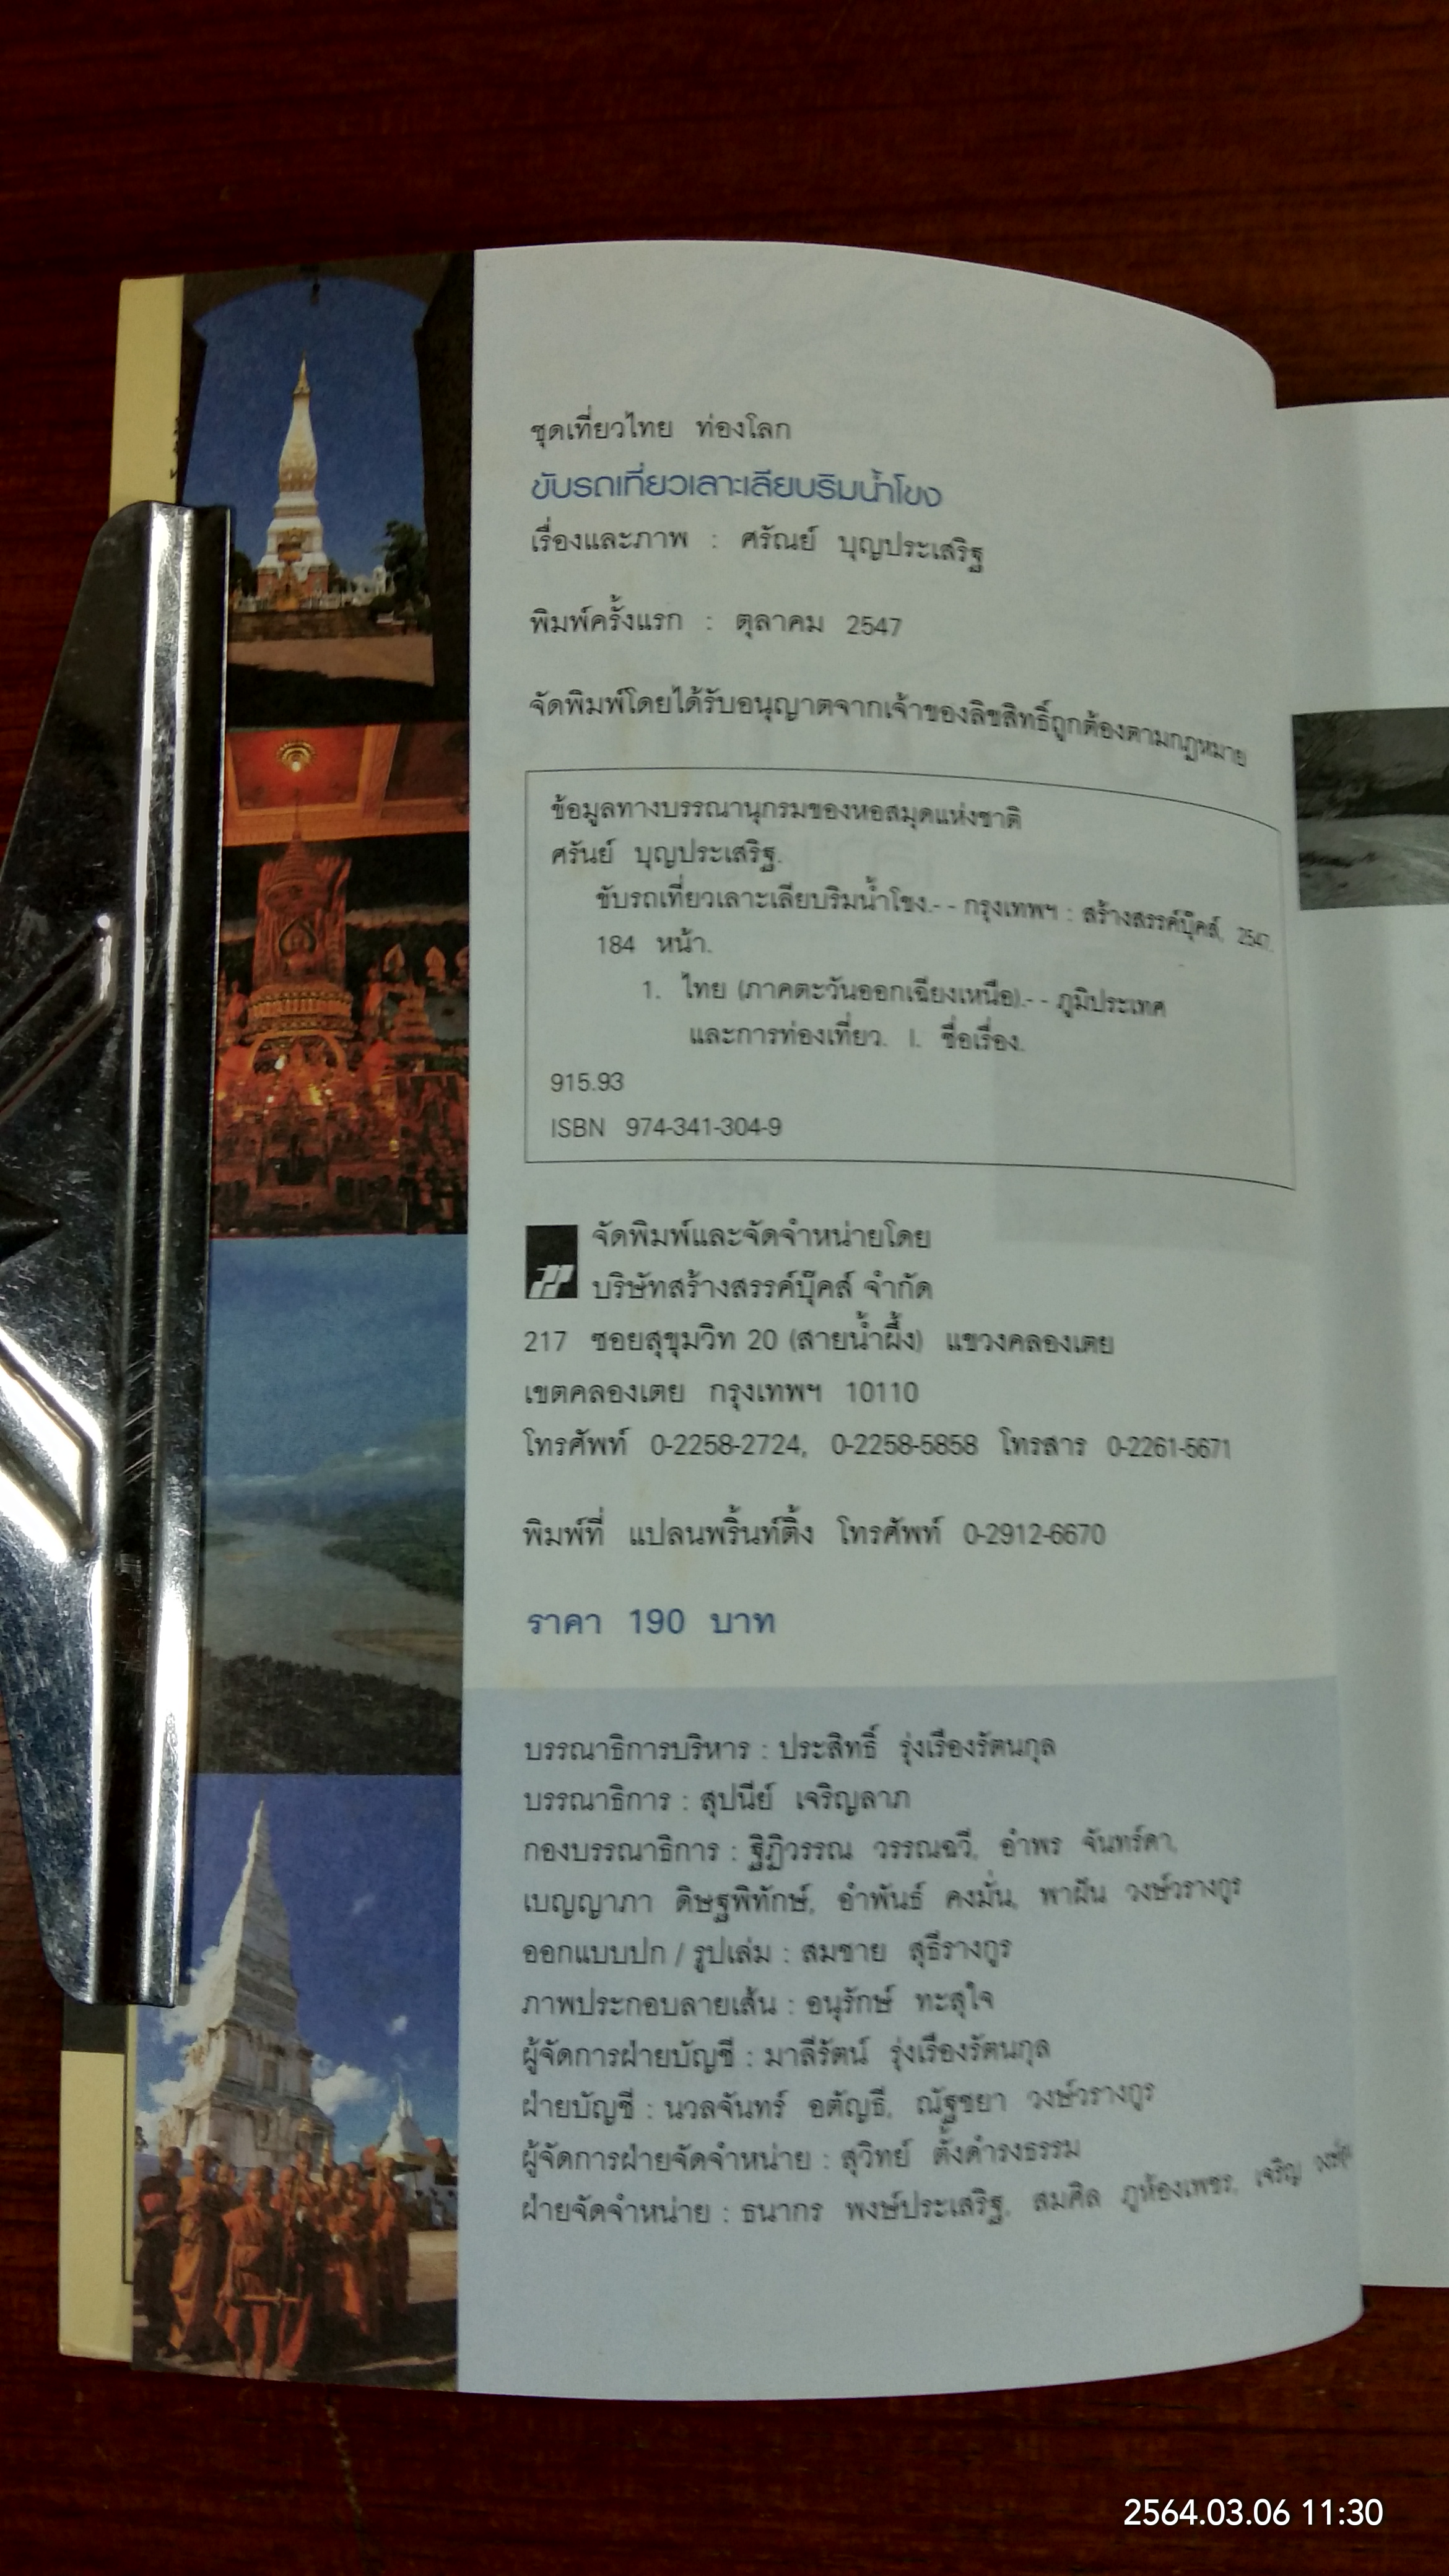 ชุดเที่ยวไทย ท่องโลก
ขับรถเที่ยวเลาะเลียบริมน้ำโขง
เรื่องและภาพ : ศรัณย์ บุญประเสริฐ
พิมพ์ครั้งแรก : ตุลาคม 2547
จัดพิมพ์โดยได้รับอนุญาตจากเจ้าของลิขสิทธิ์ถูกต้องตามกฎหมาย
ข้อมูลทางบรรณานุกรมของหอสมุดแห่งชาติ
ศรันย์ บุญประเสริฐ.
ขับรถเที่ยวเลาะเลียบริมน้ำโขง.-- กรุงเทพฯ : สร้างสรรค์บุ๊คส์, 2547.
184 หน้า.
1. ไทย (ภาคตะวันออกเฉียงเหนือ).-- ภูมิประเทศ
และการท่องเที่ยว. I. ชื่อเรื่อง.
915.93
ISBN 974-341-304-9
จัดพิมพ์และจัดจำหน่ายโดย
บริษัทสร้างสรรค์บุ๊คส์ จำกัด
217 ซอยสุขุมวิท 20 (สายน้ำผึ้ง) แขวงคลองเตย
เขตคลองเตย กรุงเทพฯ 10110
โทรศัพท์ 0-2258-2724, 0-2258-5858 โทรสาร 0-2261-5671
พิมพ์ที่ แปลนพริ้นท์ติ้ง โทรศัพท์ 0-2912-6670
ราคา 190 บาท
บรรณาธิการบริหาร : ประสิทธิ์ รุ่งเรืองรัตนกุล
บรรณาธิการ : สุปนีย์ เจริญลาภ
กองบรรณาธิการ : ฐิฏิวรรณ วรรณฉวี, อำพร จันทร์ดา,
เบญญาภา ดิษฐพิทักษ์, อำพันธ์ คงมั่น, พาฝัน วงษ์วรางกูร
ออกแบบปก / รูปเล่ม : สมชาย สุธีรางกูร
ภาพประกอบลายเส้น : อนุรักษ์ ทะสุใจ
ผู้จัดการฝ่ายบัญชี : มาลีรัตน์ รุ่งเรืองรัตนกุล
ฝ่ายบัญชี : นวลจันทร์ อตัญธี, ณัฐชยา วงษ์วรางกูร
ผู้จัดการฝ่ายจัดจำหน่าย : สุวิทย์ ตั้งดำรงธรรม
ฝ่ายจัดจำหน่าย : ธนากร พงษ์ประเสริฐ, สมศิล ภูห้องเพชร, เจริญ
2564.03.06 11:30